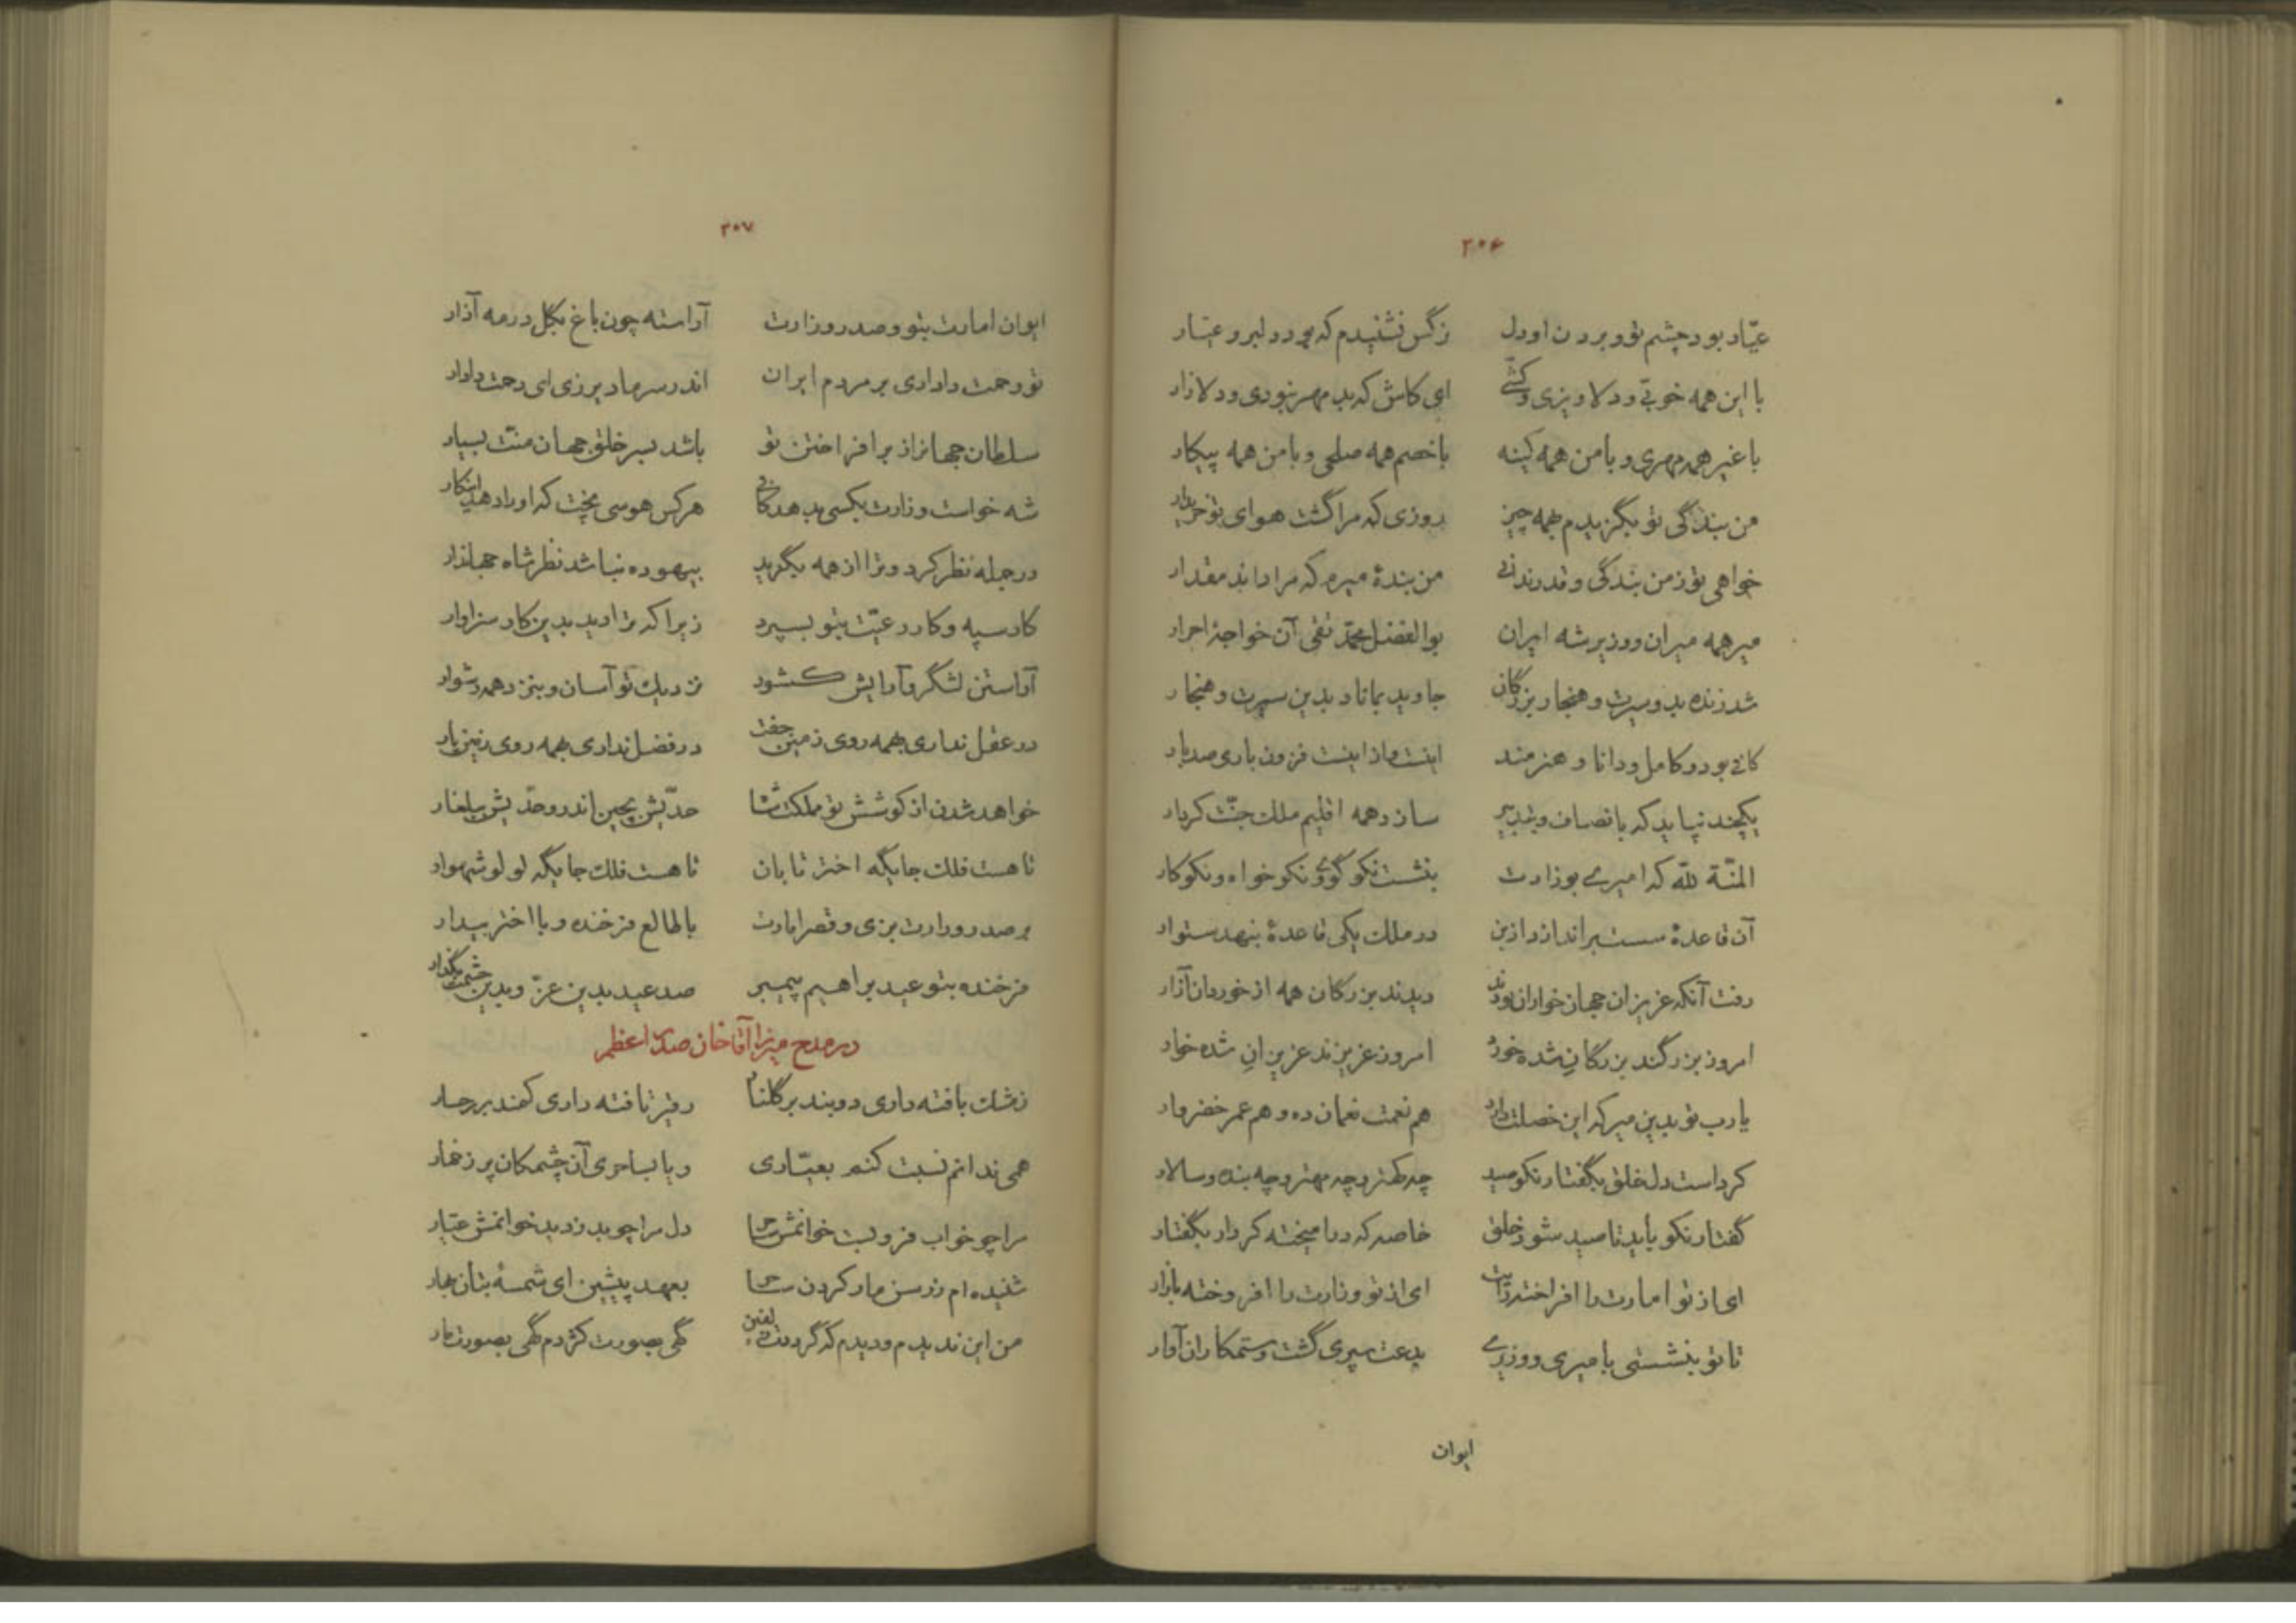 ۳۰۶
عیّار بود چشم تو و بردن او دل نرگس نشنیدم که بود دلبر و عیّار
با این همه خوبی و دلاویزی و کشّی ای کاش که بدمهر نبودی و دلازار
با غیر همه مهری و با من همه کینه با خصم همه صلحی و با من همه پیکار
من بندگی تو بگزیدم بهمه چیز روزی که مرا گشت هوای تو خریدار
خواهی تو ز من بندگی و قدر ندانی من بندهٔ میرم که مرا داند مقدار
میر همه میران و وزیر شه ایران بوالفضل محمّد تقی آن خواجهٔ احرار
شد زنده بدو سیرت و هنجار بزرگان جاوید بماناد بدین سیرت و هنجار
کافی بود و کامل و دانا و هنرمند اینست و از اینست فزون باری صد بار
یکچند نپاید که بانصاف و بتدبیر سازد همه اقلیم ملک جنّت کردار
المنّة لله که امیری بوزارت بنشست نکو گوی و نکو خواه و نکو کار
آن قاعدهٔ سست براندازد ازین در ملک یکی قاعدهٔ بنهد ستوار
رفت آنکه عزیزان جهان خواران بودند دیدند بزرگان همه از خوردان آزار
امروز بزرگند بزرگانِ شده خورد امروز عزیزند عزیزانِ شده خوار
یارب تو بدین میر که این خصلت دارد هم نعمت نعمان ده و هم عمر خضروار
کرداست دل خلق بگفتار نکو صید چه کهتر و چه مهتر و چه بنده و سالار
گفتار نکو باید تا صید شود خلق خاصه که درامیخته کردار بگفتار
ای از تو امارت را افراخته رایت ای از تو وزارت را افروخته بازار
تا تو بنشستی بامیری و وزیری بدعت سپری گشت و ستمکاران آوار
ایوان
۳۰۷
ایوان امارت بتو و صدر وزارت آراسته چون باغ بگل در مه آذار
تو رحمت داداری بر مردم ایران اندر سر ما دیر زی ای رحمت دادار
سلطان جهانرا ز برافراختن تو باشد بسر خلق جهان منّت بسیار
شه خواست وزارت بکسی بدهد کافی هرکس هوسی پخت که او را دهد اینکار
در جمله نظر کرد و ترا از همه بگزید بیهوده نباشد نظر شاه جهاندار
کار سپه و کار رعیّت بتو بسپرد زیرا که ترا دید بدین کار سزاوار
آراستن لشگر و آرایش کشور نزدیک تو آسان و بنزد همه دشوار
در عقل نداری بهمه روی زمین جفت در فضل نداری بهمه روی زمین یار
خواهد شدن از کوشش تو مملکت شاه حدّیش بچین اندر و حدّیش ببلغار
تا هست فلک جایگه اختر تابان تا هست فلک جایگه لولو شهوار
بر صدر وزارت بزی و قصر امارت با طالع فرخنده و با اختر بیدار
فرخنده بتو عید براهیم پیمبر صد عید بدین عزّ و بدین حشمت بگذار
در مدح میرزا آقا خان صدر اعظم
ز مشک بافته داری دو بند بر گلنار ز قیر تافته داری کمند بر رخسار
همی ندانم نسبت کنم بعیّاری و یا بساحری آن چشمکان پر ز خمار
مرا چو خواب فرو بست خوانمش ساحر دل مرا چو بدزدید خوانمش عیّار
شنیده‌ام ز رسن مار کردن ساحر بعهد پیشین ای شمسهٔ بتان بهار
من این ندیدم و دیدم که گرد زلفین گهی بصورت کژدم گهی بصورت مار